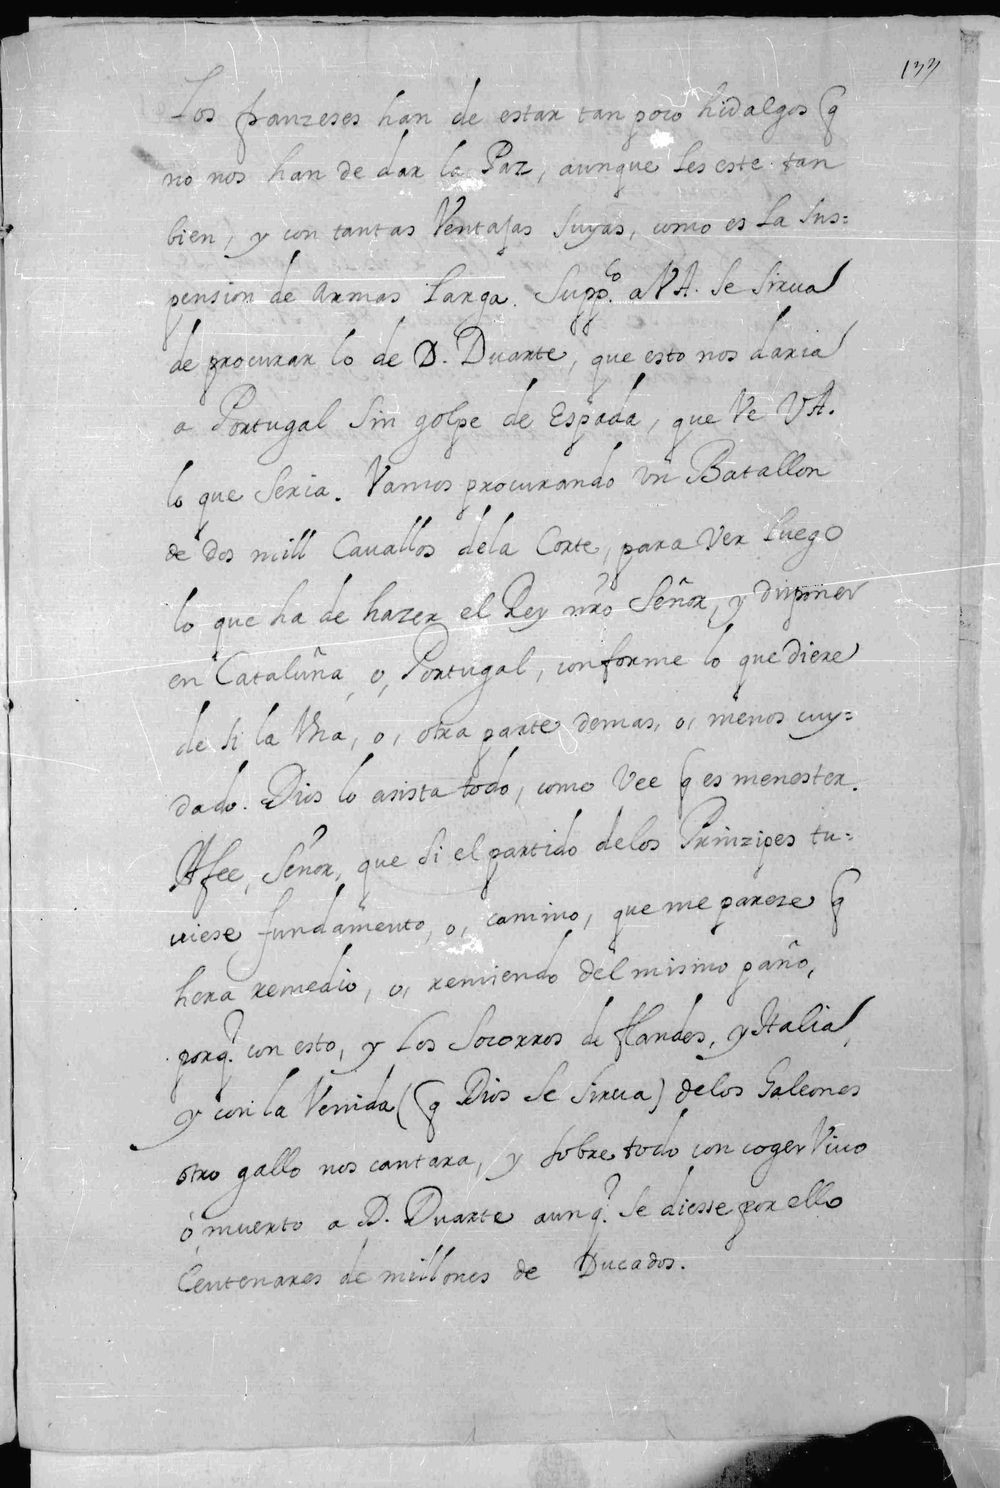 133
Los franzeses han de estar tan poco hidalgos q̃
no nos han de dar la Paz, aunque les este tan
bien, y con tantas Ventajas suyas, como es la sus=
pension de armas larga. Supp.co a VA. se sirua
de procurar lo de D. Duarte, que esto nos daria
a Portugal sin golpe de Espada, que Ve VA.
lo que seria. Vamos procurando un Batallon
de dos mill Cauallos dela Corte, para Ver luego
lo que ha de hazer el Rey nr̃o Señor, y disponer
en Cataluña, o, Portugal, conforme lo que diere
de si la Vna, o, otra parte demas, o, menos cuy=
dado. Dios lo asista todo, como Vee q̃ es menester.
Afee, Señor, que si el partido delos Prinzipes tu=
uiese fundamento, o, camino, que me pareze q̃
hera remedio, o, remiendo del mismo paño,
porq̃. con esto, y los Socorros de flandes, y Italia,
y con la Venida (q̃ Dios se sirua) delos Galeones
otro gallo nos cantara, y sobre todo con coger Viuo
ó muerto a D. Duarte aunq̃. se diesse por ello
Centenares de millones de Ducados.